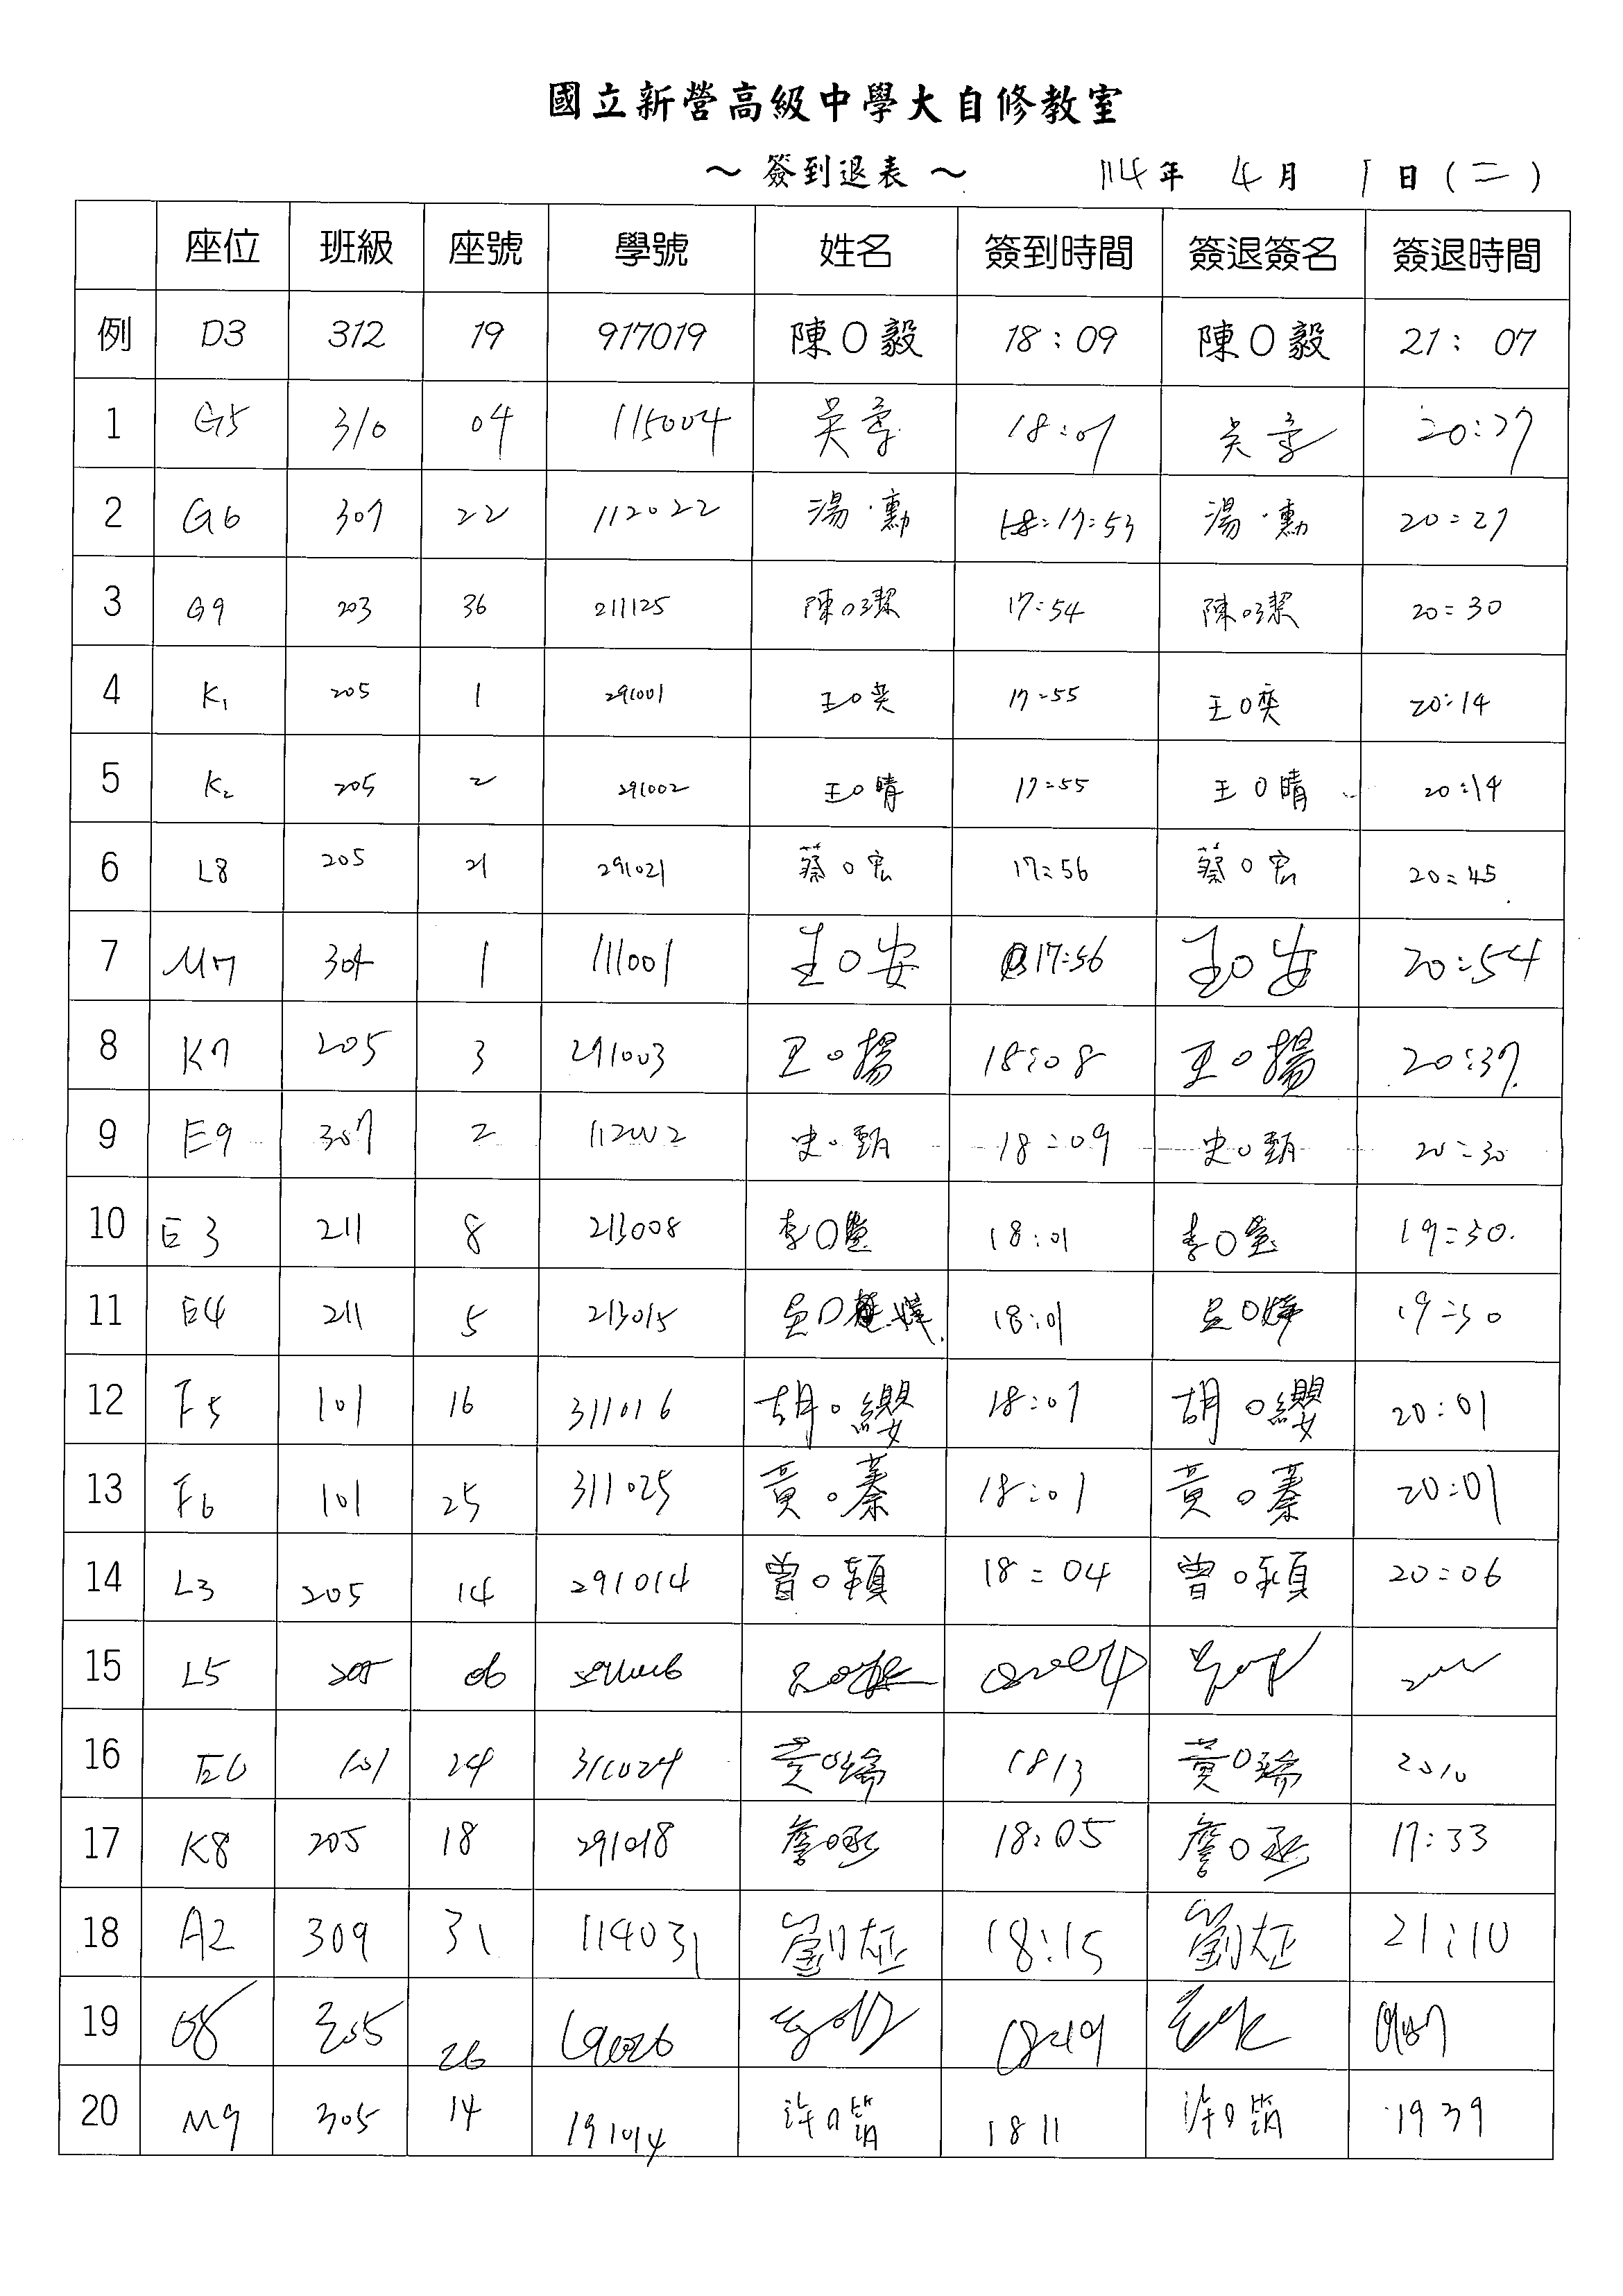 國立新營高級中學大自修教室
～ 簽到退表 ～ 114年 4月 1日(二)
座位 班級 座號 學號 姓名 簽到時間 簽退簽名 簽退時間
例 D3 312 19 917019 陳O毅 18:09 陳O毅 21:07
1 G5 310 04 115004 吳 18:01 吳 20:27
2 G6 307 22 112022 湯·勳 17:53 湯·勳 20:27
3 G9 203 36 211125 陳O潔 17:54 陳O潔 20:30
4 K1 205 1 291001 王O奕 17:55 王O奕 20:14
5 K2 205 2 291002 王O晴 17:55 王O晴 20:14
6 L8 205 21 291021 蔡O宏 17:56 蔡O宏 20:45
7 M7 304 1 111001 王O安 17:56 王O安 20:54
8 K7 205 3 291003 王O揚 18:08 王O揚 20:37
9 E9 307 2 112002 史O甄 18:09 史O甄 20:30
10 E3 211 8 213008 李O 18:01 李O 19:30
11 E4 211 5 213015 吳O 18:01 吳O婷 19:30
12 F5 101 16 311016 胡O纓 18:01 胡O纓 20:01
13 F6 101 25 311025 黃O蓁 18:01 黃O蓁 20:01
14 L3 205 14 291014 曾O穎 18:04 曾O穎 20:06
15 L5 205 06
16 E6 101 24 311024 黃O 1813 黃O 2010
17 K8 205 18 291018 詹O丞 18:05 詹O丞 17:33
18 A2 309 31 114031 劉 18:15 劉 21:10
19 305 26 1849
20 M9 305 14 191014 許O 1811 許O 1939